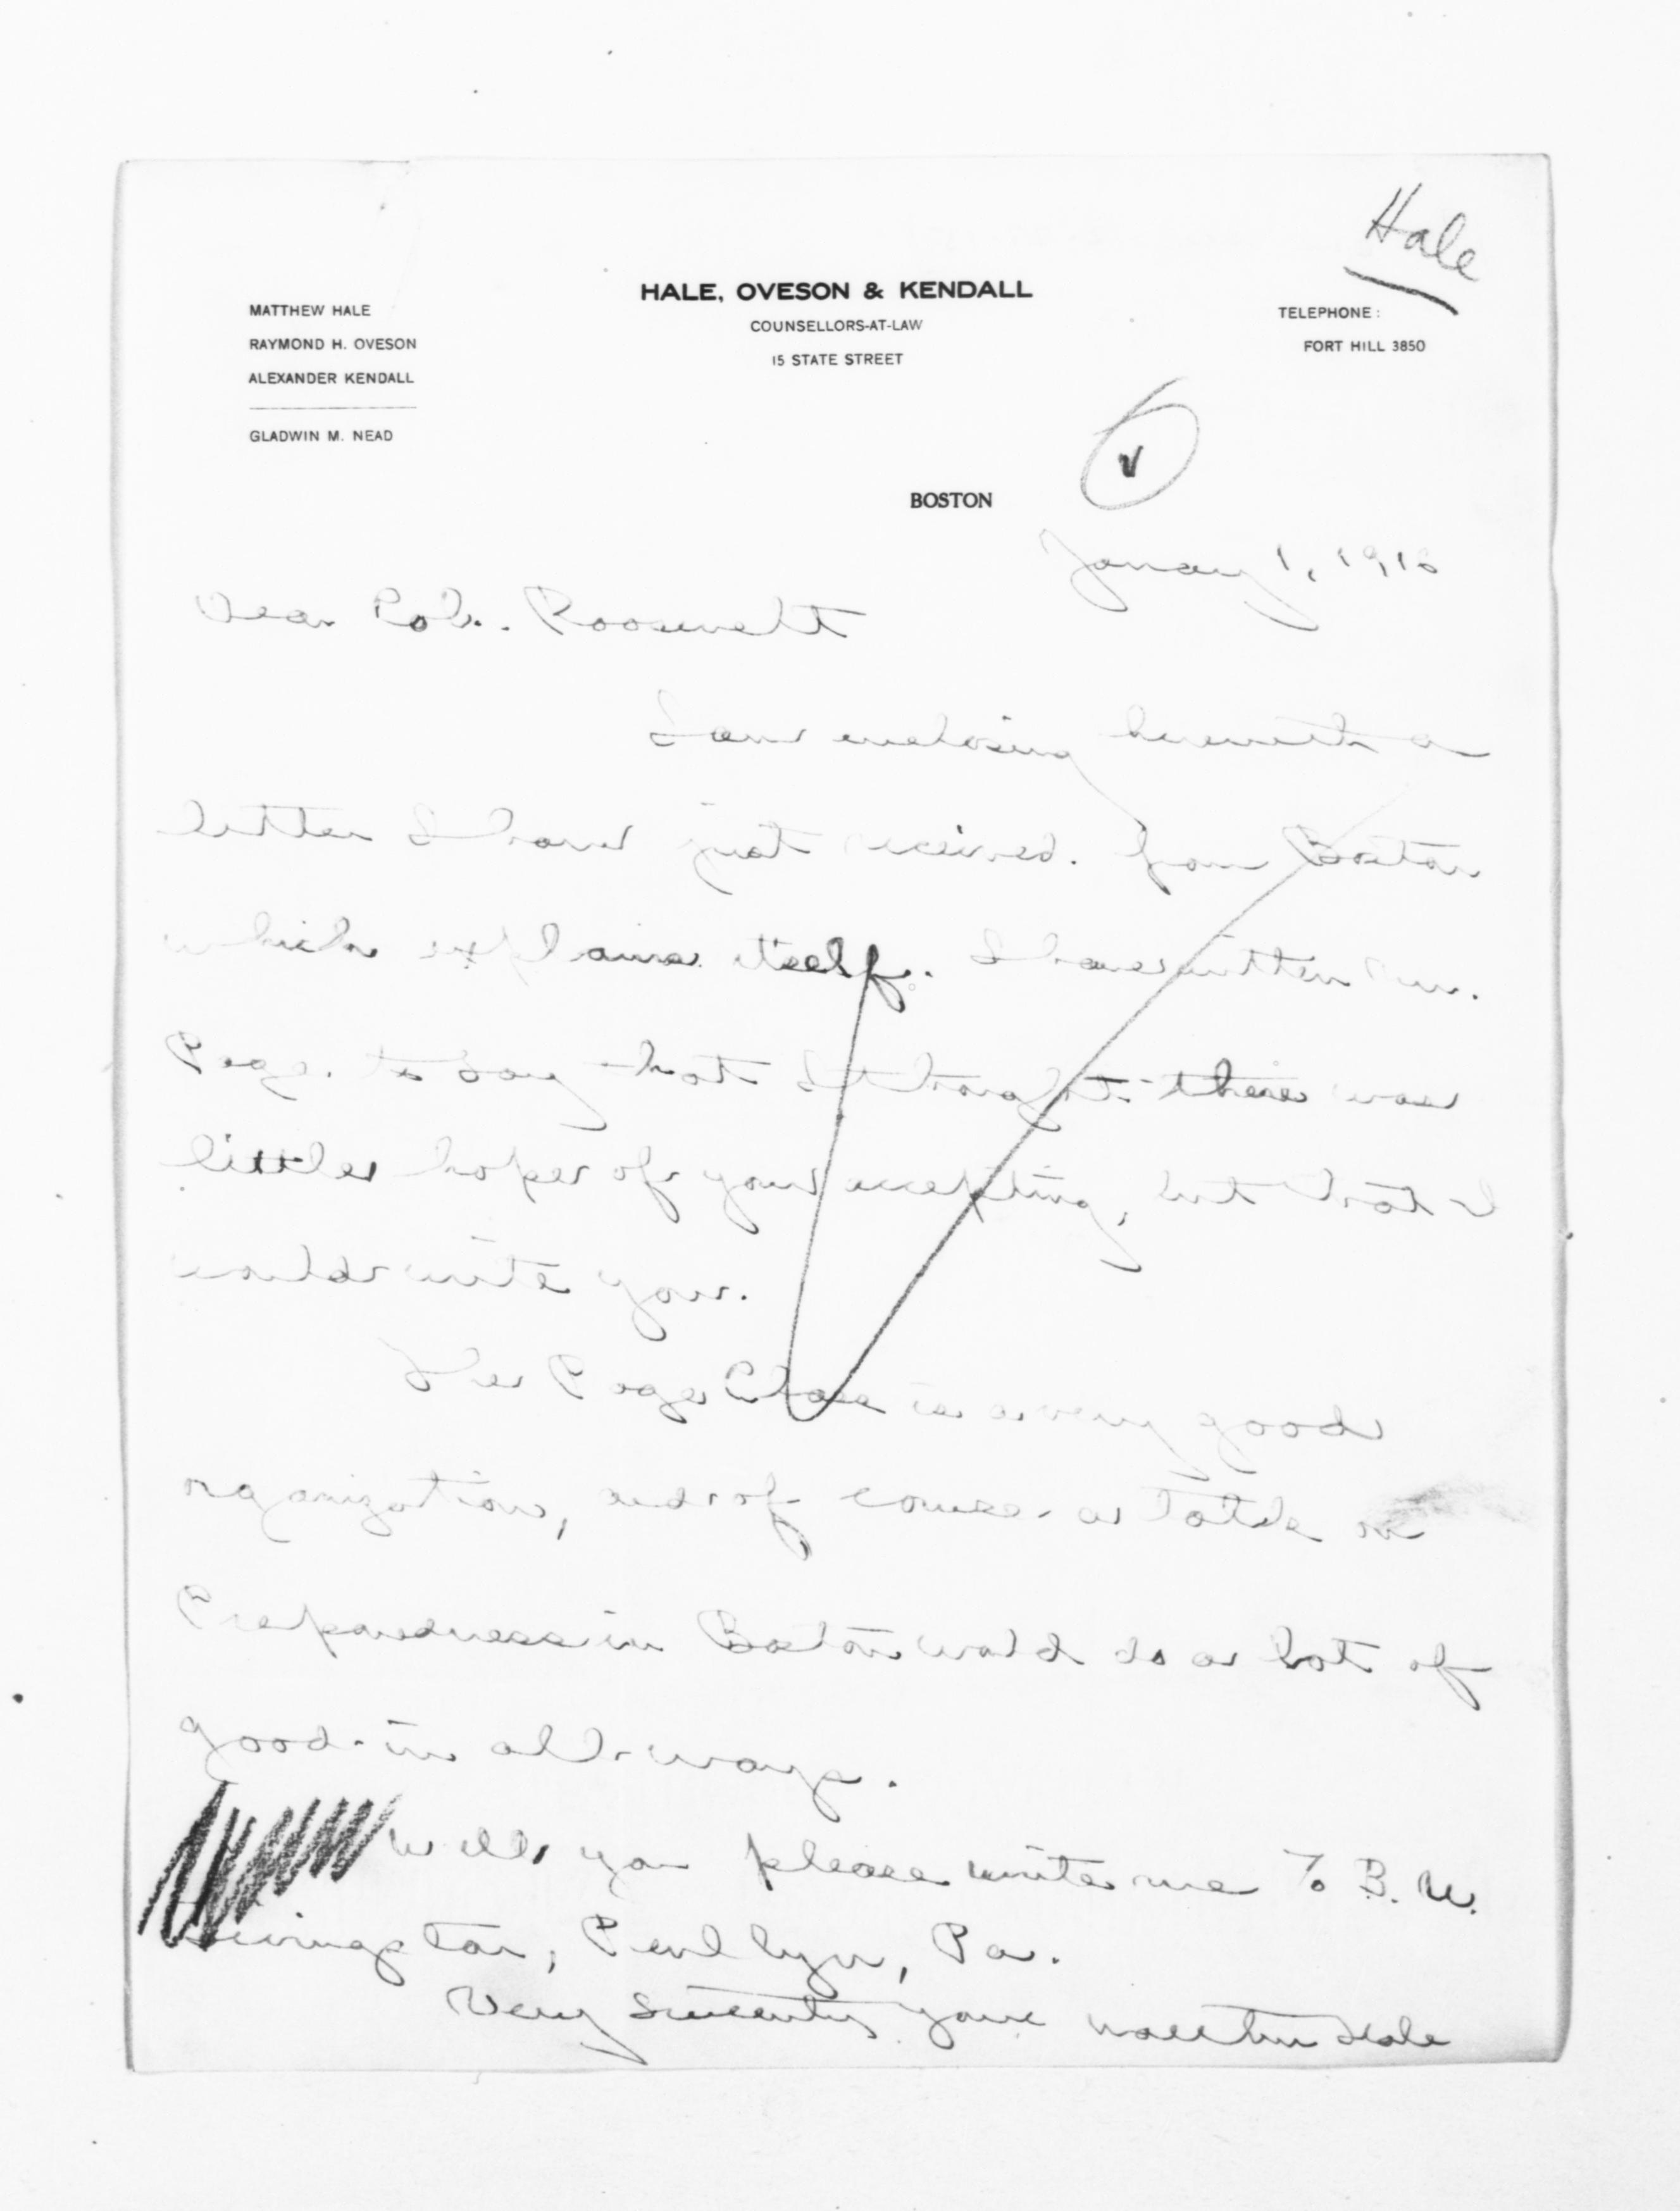 Hale
HALE, OVESON & KENDALL
COUNSELLORS-AT-LAW
15 STATE STREET
MATTHEW HALE
RAYMOND H. OVESON
ALEXANDER KENDALL
GLADWIN M. NEAD
TELEPHONE:
FORT HILL 3850
BOSTON
January 1, 1916
Dear Col. Roosevelt
I am enclosing herewith a
letter I have just received from Boston
which explains itself. I have written Mr.
Page to say that I thought there was
little hope of your accepting, but that I
would write you.
The Page Class is a very good
organization, and of course a talk on
Preparedness in Boston would do a lot of
good in all ways.
Will you please write me % B. W.
Livingston, Penllyn, Pa.
Very sincerely yours Matthew Hale